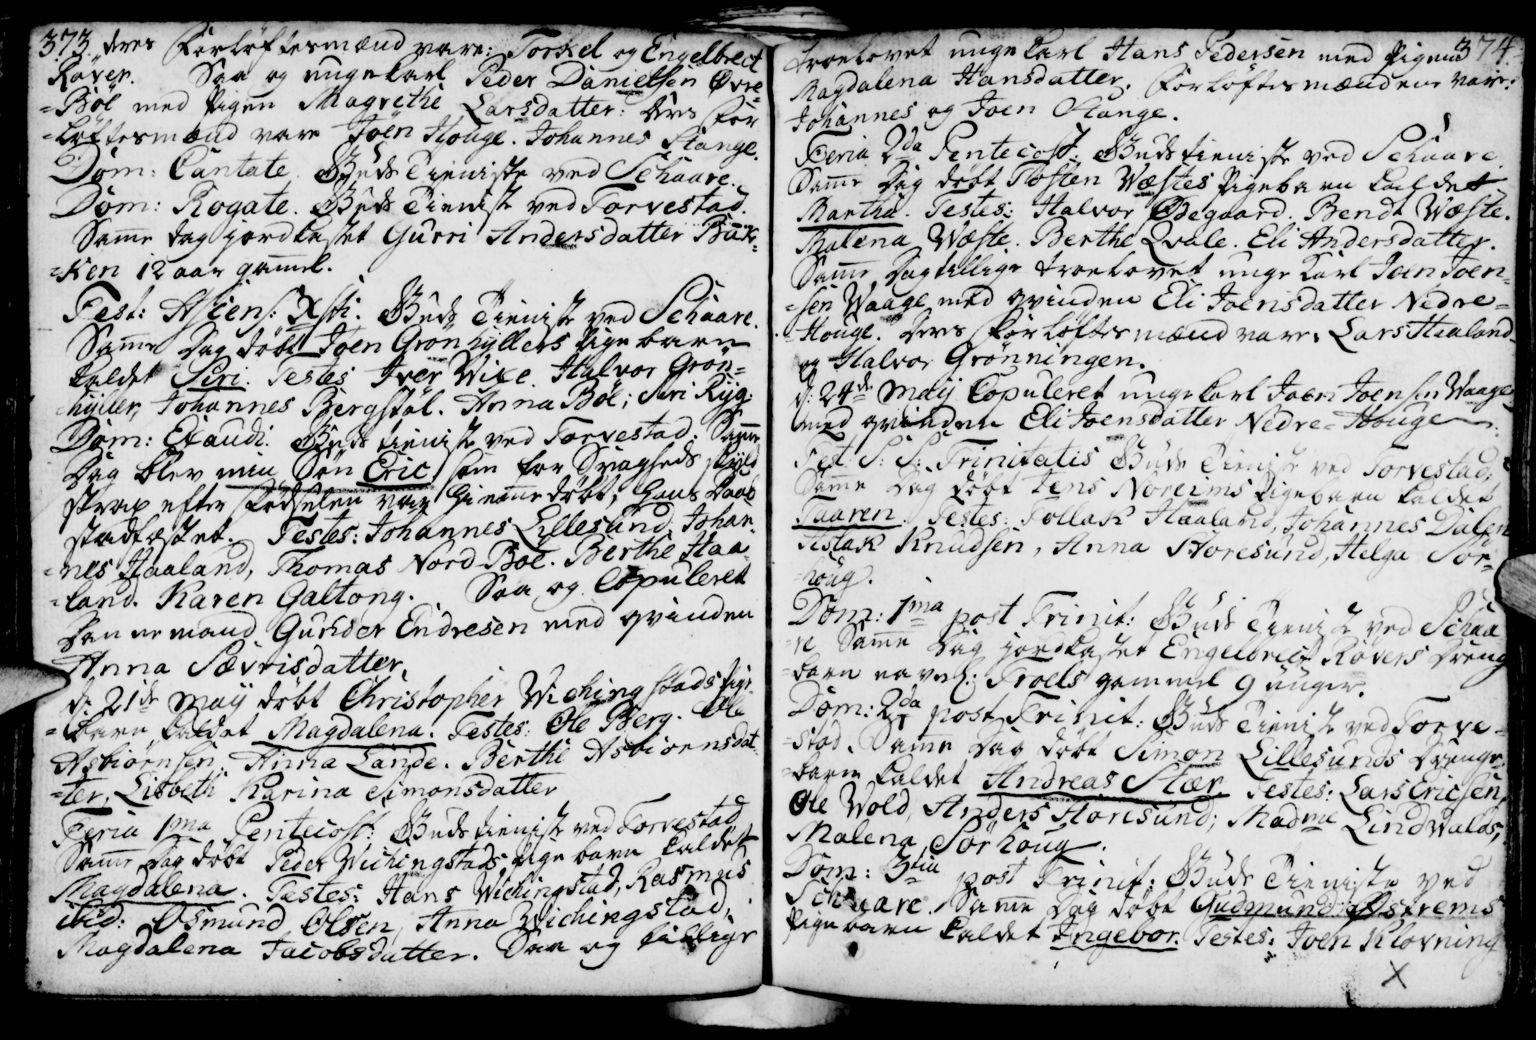 373. deres Forløftesmænd vare: Torkel og Engelbrect
Røver. Saa og unge karl Peder Danielsen Øvre-
-Böe med Pigen Magrethe Larsdatter. Ders For
-løftesmænd vare Joen Houge. Johannes Stange.
Dom: Cantate. Guds Tieniste ved Schaare.
Dom: Rogate. Guds Tieniste ved Torvestad.
Samme dag jordkastet Gurri Andersdatter Buk-
-ken 12 aar gammel.
Fest: Ascens: Xsti. Guds Tieniste ved Schaare.
Samme Dag döbt Joen Grönhyllers Pige barn
kaldet Siri. Testes Iver Wixe. Halvor Grön-
-hyller, Johannes Bergstöl. Anna Böe; Siri Ryg.
Dom: Exaudi. Guds tieniste ved Torvestad. Samme
Dag blev min Sön Eric som for Svagheds skyld
strax efter Födselen var hiemme döbt, hans Daab
stadfæstet. Testes: Johannes Lillesund, Johan-
-nes Haaland, Thomas Nord-Böe. Berthe Haa-
-land. Karen Galtong. Saa og Copuleret
Dannemand Gunder Endresen med qvinden
Anna Sævrisdatter.
d: 21de Maij döbt Christopher Wichingstads Pige-
-barn kaldet Magdalena. Testes: Ole Berg. Ole
Asbiörnsen, Anna Lande. Berthe Asbiörensdat-
-ter, Lisbeth Karina Simonsdatter
Feria 1ma Pentecost: Guds tieniste ved Torvestad
Samme Dag döbt Peder Wichingstads Pige barn kaldet
Magdalena. Testes: Hans Wichingstad, Rasmus
ibid: Osmund Olsen, Anna Wichingstad,
Magdalena Jacobsdatter. Saa og tillige
374.
troelovet unge karl Hans Pedersen med Pigen
Magdalena Hansdatter. Forløftesmændene var:
Johannes og Joen Stange.
Feria 2da Pentecost: Guds tieniste ved Schaare.
Samme Dag döbt Tosten Wæstes Pigebarn kaldet
Martha. Testes: Halvor Ödegaard. Bendt Wæste.
Malena Wæste. Berthe Qvale. Eli Andersdatter.
Samme Dag tillige troelovet unge karl Joen Joen-
-sen Waage med qvinden Eli Joensdatter Nedre-
-Houge. Deres Forløftesmænd var: Lars Haaland
og Halvor Grønningen.
d: 24de Maij Copuleret unge karl Joen Joensen Waage
med qvinden Eli Joensdatter Nedre-Houge
Fest: S: S: Trinitatis Guds Tieniste ved Torvestad.
Samme Dag döbt Jens Noreims Pigebarn kaldet
Taaren. Testes: Tollak Haaland, Johannes Dalen
Aslak Knudsen, Anna Storesund, Helga Sör-
-houg.
Dom: 1ma post Trinit: Guds Tieniste ved Schaa
re Samme Dag jordkastet Engelbrect Røvers Dreng
-barn navnl: Troels gammel 9 uuger.
Dom: 2da post Trinit: Guds Tieniste ved Torve-
-stad. Samme Dag döbt Simon Lillesunds Drenge-
-barn kaldet Andreas Stær. Testes: Lars Ericsen,
Ole Wold, Anders Storesund; Madme Lindwalds,
Malena Sörhoug.
Dom: 3tia post Trinit: Guds Tieniste ved
Schaare. Samme Dag döbt Gudmund
Pigebarn kaldet Ingebor. Testes: Joen Klovning
X